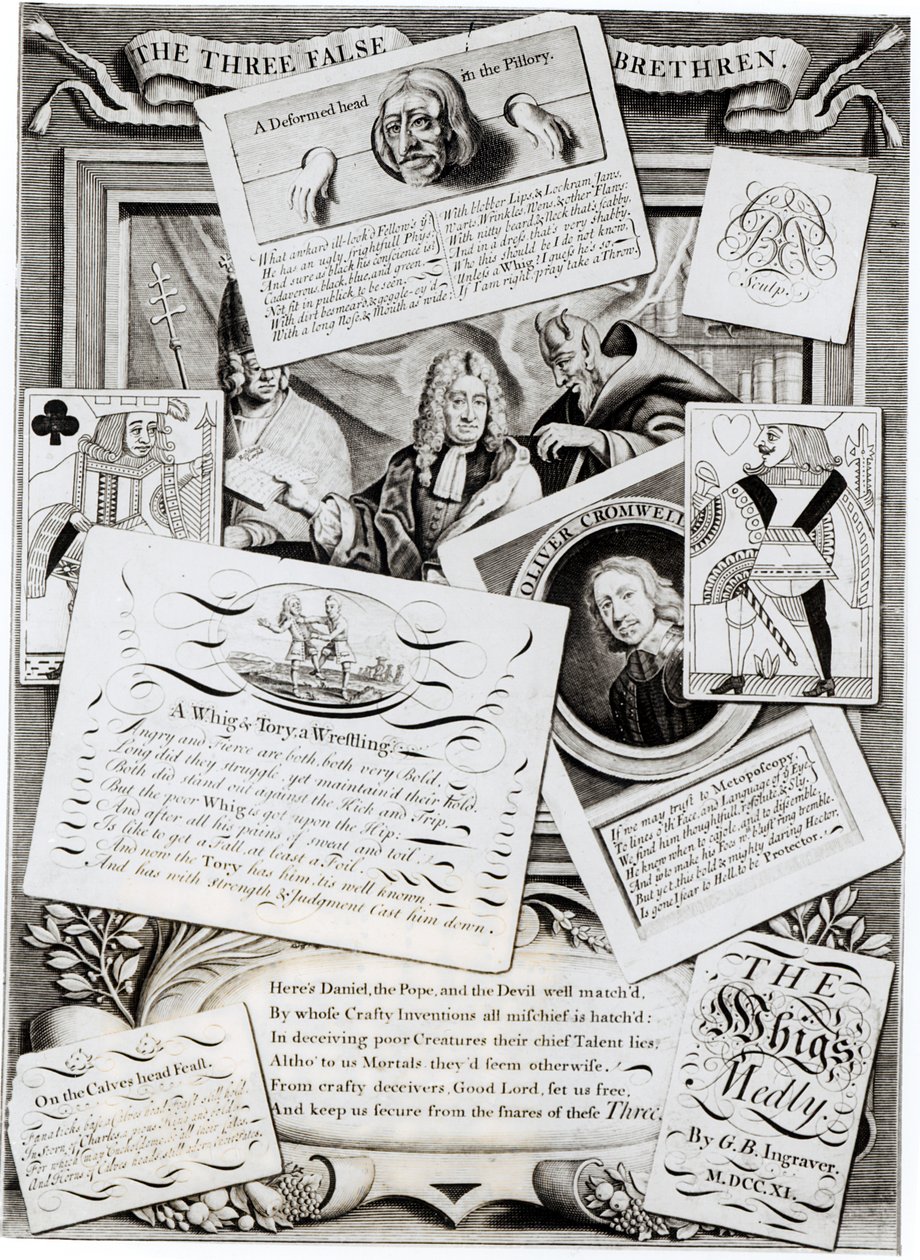 THE THREE FALSE BRETHREN.
A Deformed head in the Pillory.
What awkard ill-look'd Fellow's yt
He has an ugly, frightfull Phys'
And sure as black his conscience is
Cadaverous, black, blue, and green
Not fit in publick to be seen
With dirt besmear'd, & goggle-ey'd
With a long Nose, & Mouth as wide;
With blobber Lips, & Lockram Jaws,
Warts, Wrinkles, Wens, & other Flaws:
With nitty beard, & Neck that's scabby,
And in a dress, that's very shabby.
Who this should be I do not know,
Unless a Whig? I guess he's so.
If I am right, pray take a Throw.
Sculp.
OLIVER CROMWELL
A Whig & Tory, a Wreſtling.
Angry and Fierce are both, both very Bold,
Long did they struggle, yet maintain'd their hold,
Both did stand out against the Kick and Trip.
But the poor Whig is got upon the Hip:
And after all his pains of sweat and toil
Is like to get a Fall, at least a Foil.
And now the Tory has him, tis well known,
And has with strength, & Judgment Cast him down.
If we may trust to Metopoſcopy,
To lines ith' Face, and Language of ye Eye,
We find him thoughtfull, resolute, & Sly.
He knew when to cajole, and to diſsemble,
And w to make his Foes wth huff'ring tremble.
But yet, this bold, & mighty daring Hector.
Is gone I fear to Hell, to be Protector.
Here's Daniel, the Pope, and the Devil well match'd,
By whoſe Crafty Inventions all miſchief is hatch'd:
In deceiving poor Creatures their chief Talent lies,
Altho' to us Mortals they'd ſeem otherwiſe.
From crafty deceivers, Good Lord, ſet us free,
And keep us secure from the ſnares of theſe Three.
On the Calves head Feaſt.
Fanaticks
In scorn of Charles, a pious King
For which may
And Horns of Calves heads
THE
Whigs
Medly.
By G.B. Ingraver.
M.DCC.XI.